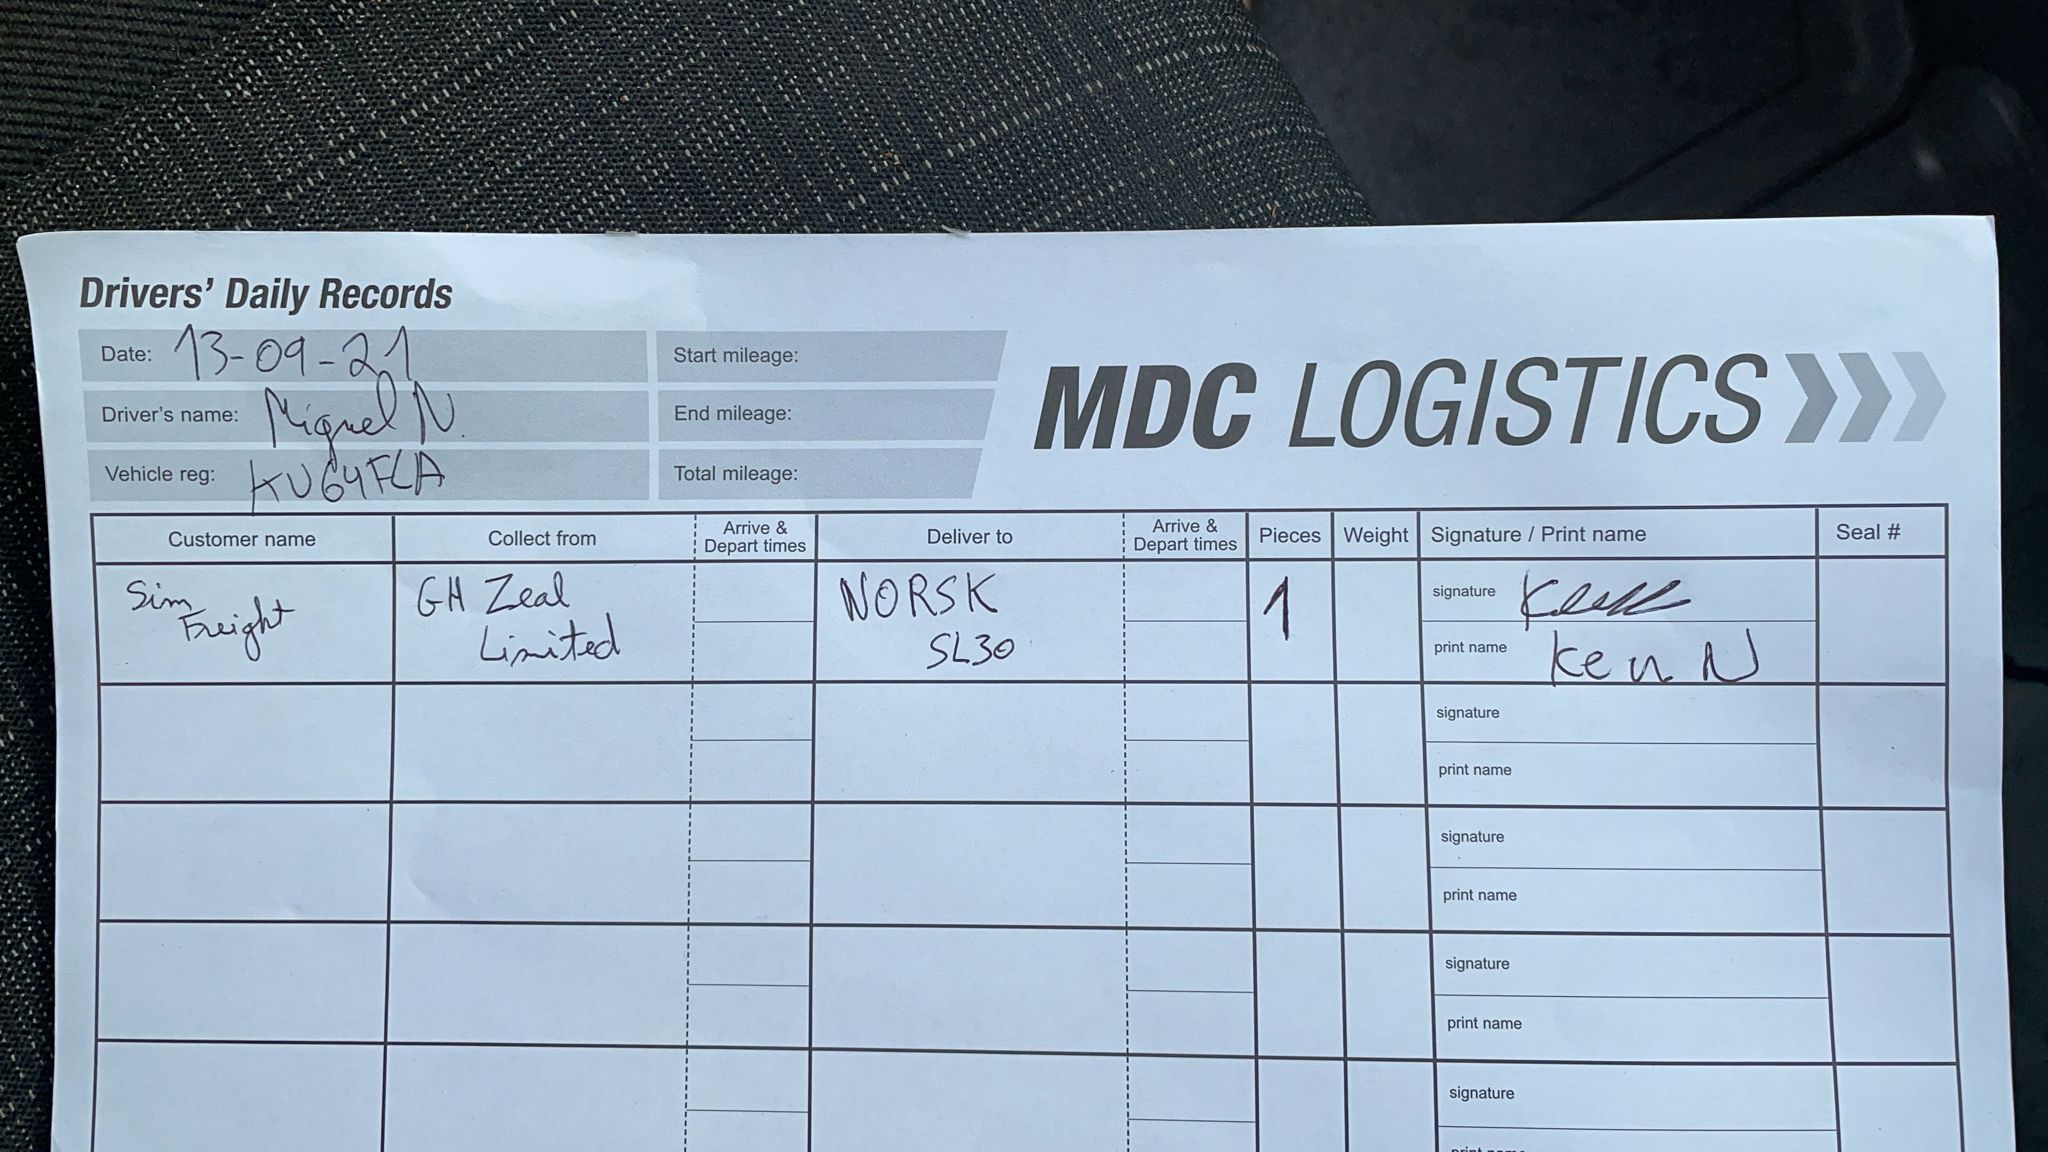 Drivers' Daily Records
Date: 13-09-21
Start mileage:
Driver's name: Miguel N.
End mileage:
Vehicle reg: KU64FLA
Total mileage:
MDC LOGISTICS
Customer name
Collect from
Arrive &
Depart times
Deliver to
Arrive &
Depart times
Pieces
Weight
Signature / Print name
Seal #
Sim
Freight
GH Zeal
Limited
NORSK
SL30
1
signature
print name Ken N
signature
print name
signature
print name
signature
print name
signature